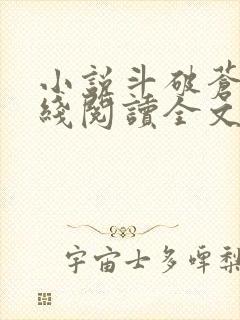 小説斗破蒼
綫閱讀全文
宇宙士多啤梨